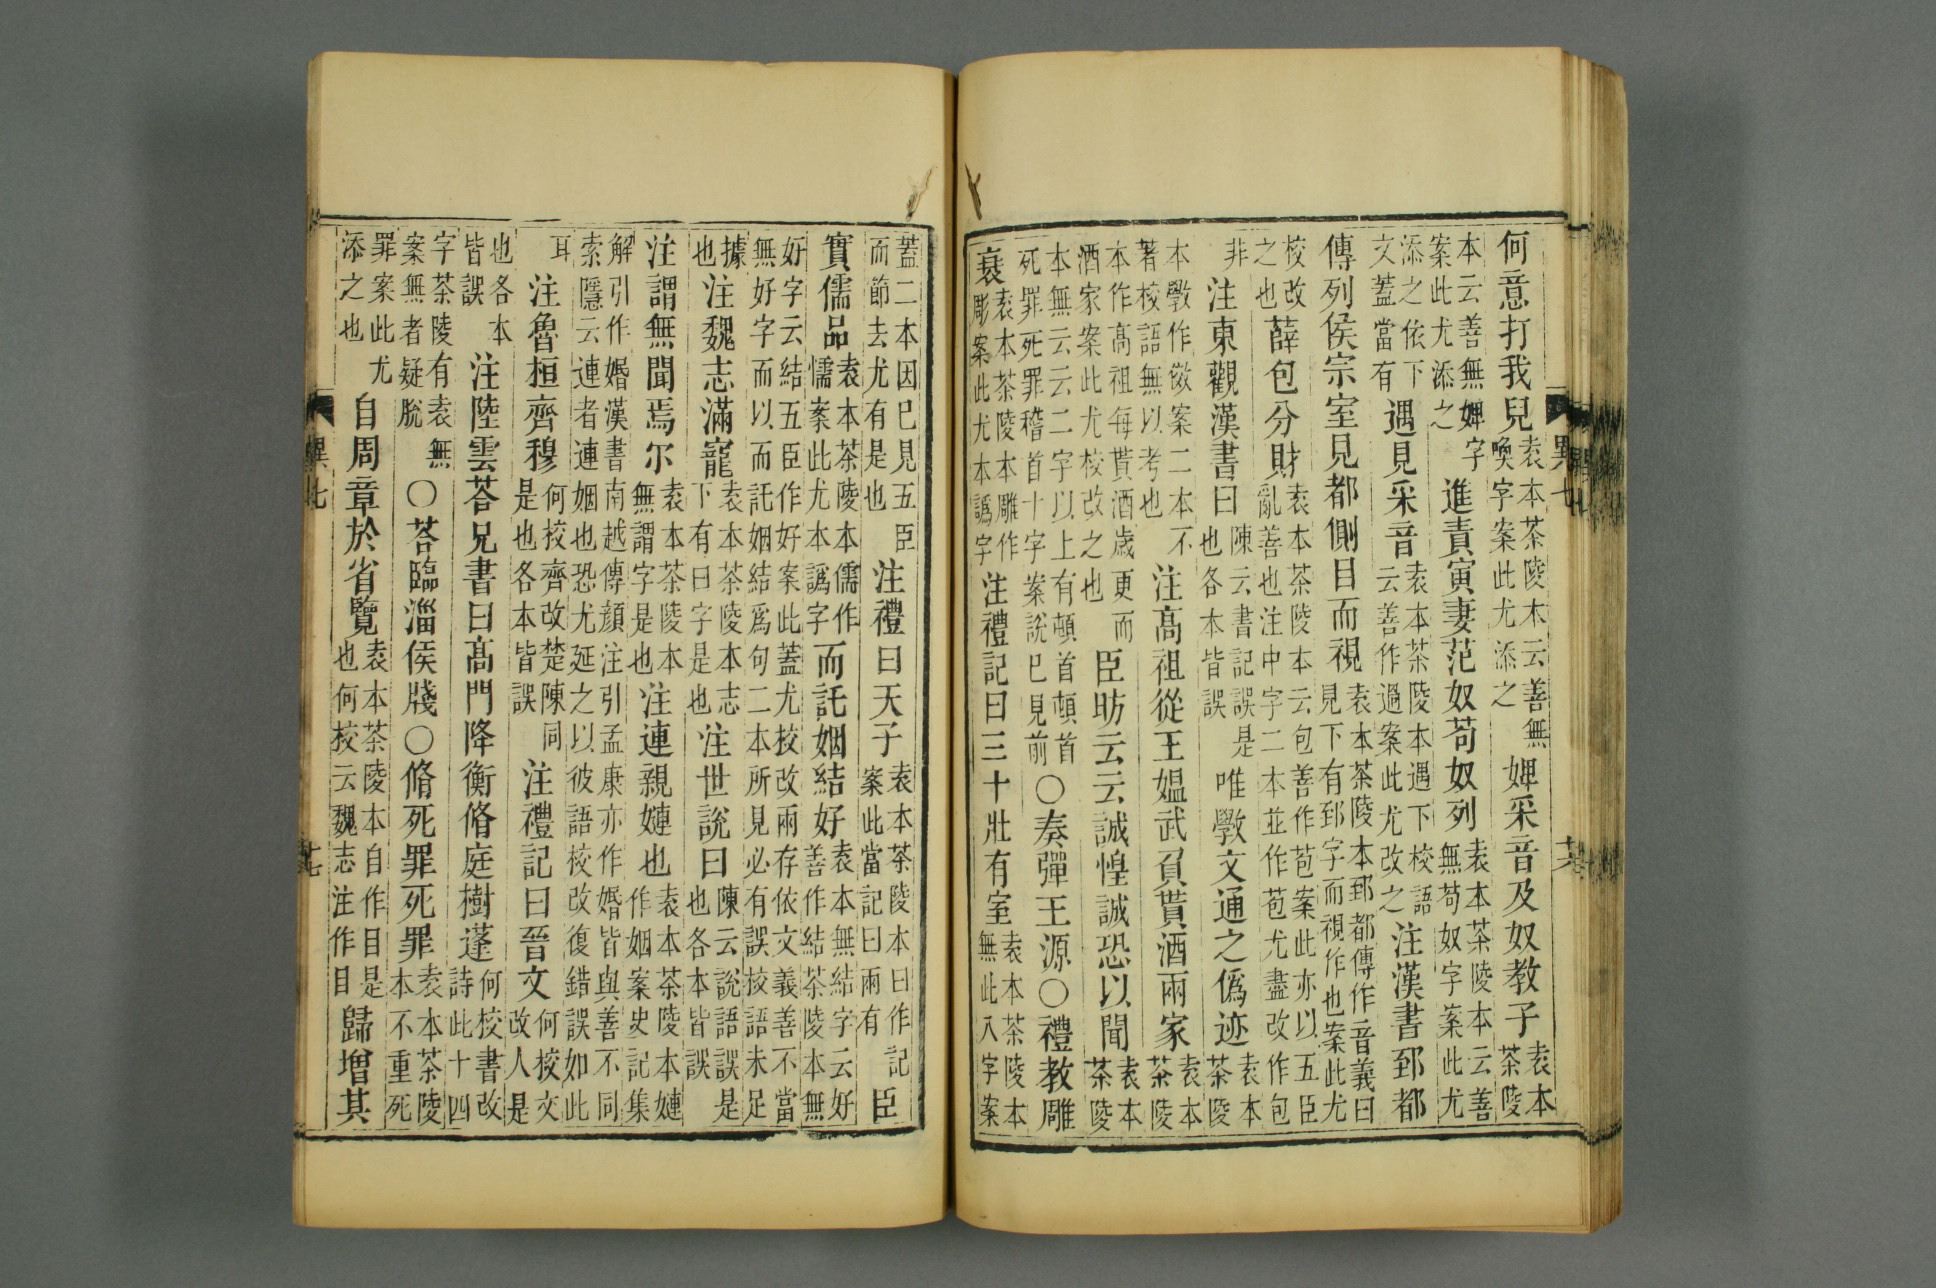 何意打我兒袁本茶陵本云善無喚字案此尤添之婢采音及奴教子袁本茶陵
本云善無婢字案此尤添之進責寅妻范奴苟奴列袁本茶陵本云善無苟奴字案此尤
添之依下文蓋當有遇見采音袁本茶陵本遇下校語云善作過案此尤改之注漢書郅都
傳列侯宗室見都側目而視袁本茶陵本郅都傳作音義曰見下有到字而視作也案此尤
校改之也薛包分財袁本茶陵本云包善作苞案此亦以五臣亂善也注中字二本並作苞尤盡改作包
非注東觀漢書曰陳云書記誤是也各本皆誤唯斅文通之僞迹袁本茶陵
本斅作傚案二本不著校語無以考也注高祖從王媼武負貰酒兩家袁本茶陵
本作高祖每貰酒歲更而酒家案此尤校改之也臣昉云云誠惶誠恐以聞袁本茶陵
本無云云二字以上有頓首頓首死罪死罪稽首十字案說已見前○奏彈王源○禮教雕
衰袁本茶陵本雕作彫案此尤本譌字注禮記曰三十壯有室袁本茶陵本無此入字案
異七
十六
蓋二本因已見五臣而節去尤有是也注禮曰天子袁本茶陵本曰作記案此當記曰兩有臣
實儒品袁本茶陵本儒作懦案此尤本譌字而託姻結好袁本無結字云好善作結茶陵本無
好字云結五臣作好案此蓋尤校改兩存依文義善不當無好字而以而託姻結爲句二本所見必有誤校語未足
據也注魏志滿寵袁本茶陵本志下有曰字是也注世說曰陳云說語誤是也各本皆誤
注謂無聞焉尒袁本茶陵本無謂字是也注連親㜕也袁本茶陵本㜕作姻案史記集
解引作婚漢書南越傳顏注引孟康亦作婚皆與善不同索隱云連者連姻也恐尤延之以彼語校改復錯誤如此
耳注魯桓齊穆何校齊改楚陳同是也各本皆誤注禮記曰晉文何校文改人是
也各本皆誤注陸雲荅兄書曰高門降衡脩庭樹蓬何校書改詩此十四
字茶陵有袁無案無者疑脫○荅臨淄侯牋○脩死罪死罪袁本茶陵本不重死
罪案此尤添之也自周章於省覽袁本茶陵本自作目是也何校云魏志注作目歸增其
異七
十七